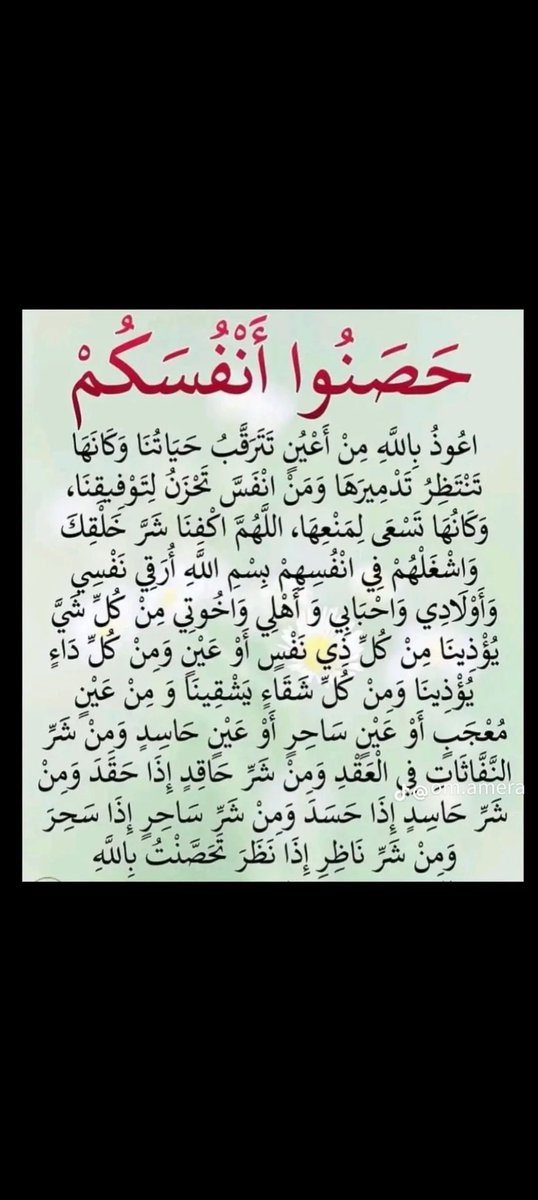 حَصَنُوا أَنْفُسَكُمْ
اعُوذُ بِاللَّهِ مِنْ أَعْيُنٍ تَتَرَقَّبُ حَيَاتُنَا وَكَانَهَا
تَنْتَظِرُ تَدْمِيرَهَا وَمَنْ انْفَسَّ تَحْزَنُ لِتَوْفِيقِنَا،
وَكَانُهَا تَسْعَى لِمَنْعِهَا، اللَّهُمَّ اكْفِنَا شَرَّ خَلْقِكَ
وَاشْغَلْهُمْ فِي انْفُسِهِمْ بِسْمِ اللَّهِ أُرَقِي نَفْسِي
وَأَوْلَادِي وَاحْبَابِي وَ أَهْلِي وَاخُوتِي مِنْ كُلِّ شَيَّ
يُؤْذِينَا مِنْ كُلِّ ذِي نَفْسٍ أَوْ عَيْنٍ وَمِنْ كُلِّ دَاءٍ
يُؤْذِينَا وَمِنْ كُلِّ شَقَاءٍ يَشْقِينَا وَ مِنْ عَيْنٍ
مُعْجَبٍ أَوْ عَيْنٍ سَاحِرٍ أَوْ عَيْنٍ حَاسِدٍ وَمِنْ شَرِّ
النَّفَّاثَاتِ فِي الْعَقْدِ وَمِنْ شَرِّ حَاقِدٍ إِذَا حَقَدَ وَمِنْ
@om.amera
شَرِّ حَاسِدٍ إِذَا حَسَدَ وَمِنْ شَرِّ سَاحِرٍ إِذَا سَحِرَ
وَمِنْ شَرِّ نَاظِرِ إِذَا نَظَرَ تَحَصَّنْتُ بِاللَّهِ